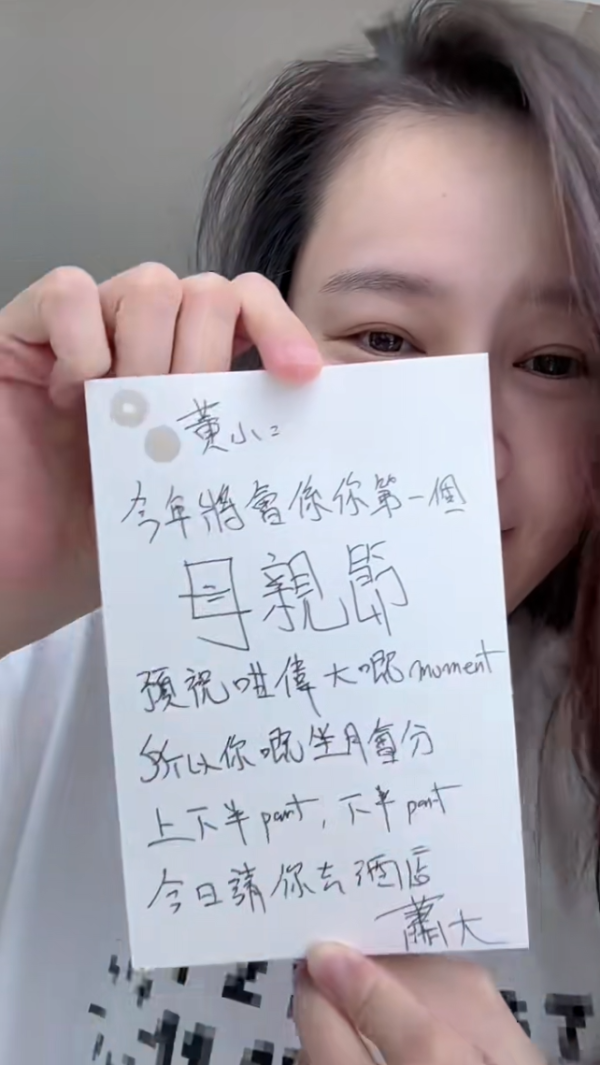 黃小二
今年將會係你第一個
母親節
預祝咁偉大嘅moment
所以你嘅坐月會分
上下半part，下半part
今日請你去酒店
蕭大